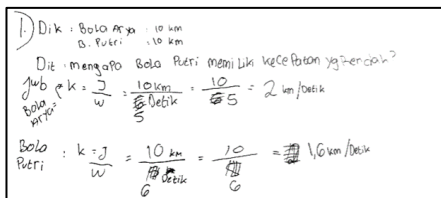 1.) Dik : Bola Arya : 10 km
B. Putri : 10 km
Dit : mengapa Bola Putri memiliki kecepatan yg rendah?
Jwb : k = J/W = 10 km/5 Detik = 10/5 = 2 km/Detik
Bola Arya
Bola Putri : k = J/W = 10 km/6 Detik = 10/6 = 1,6 km/Detik